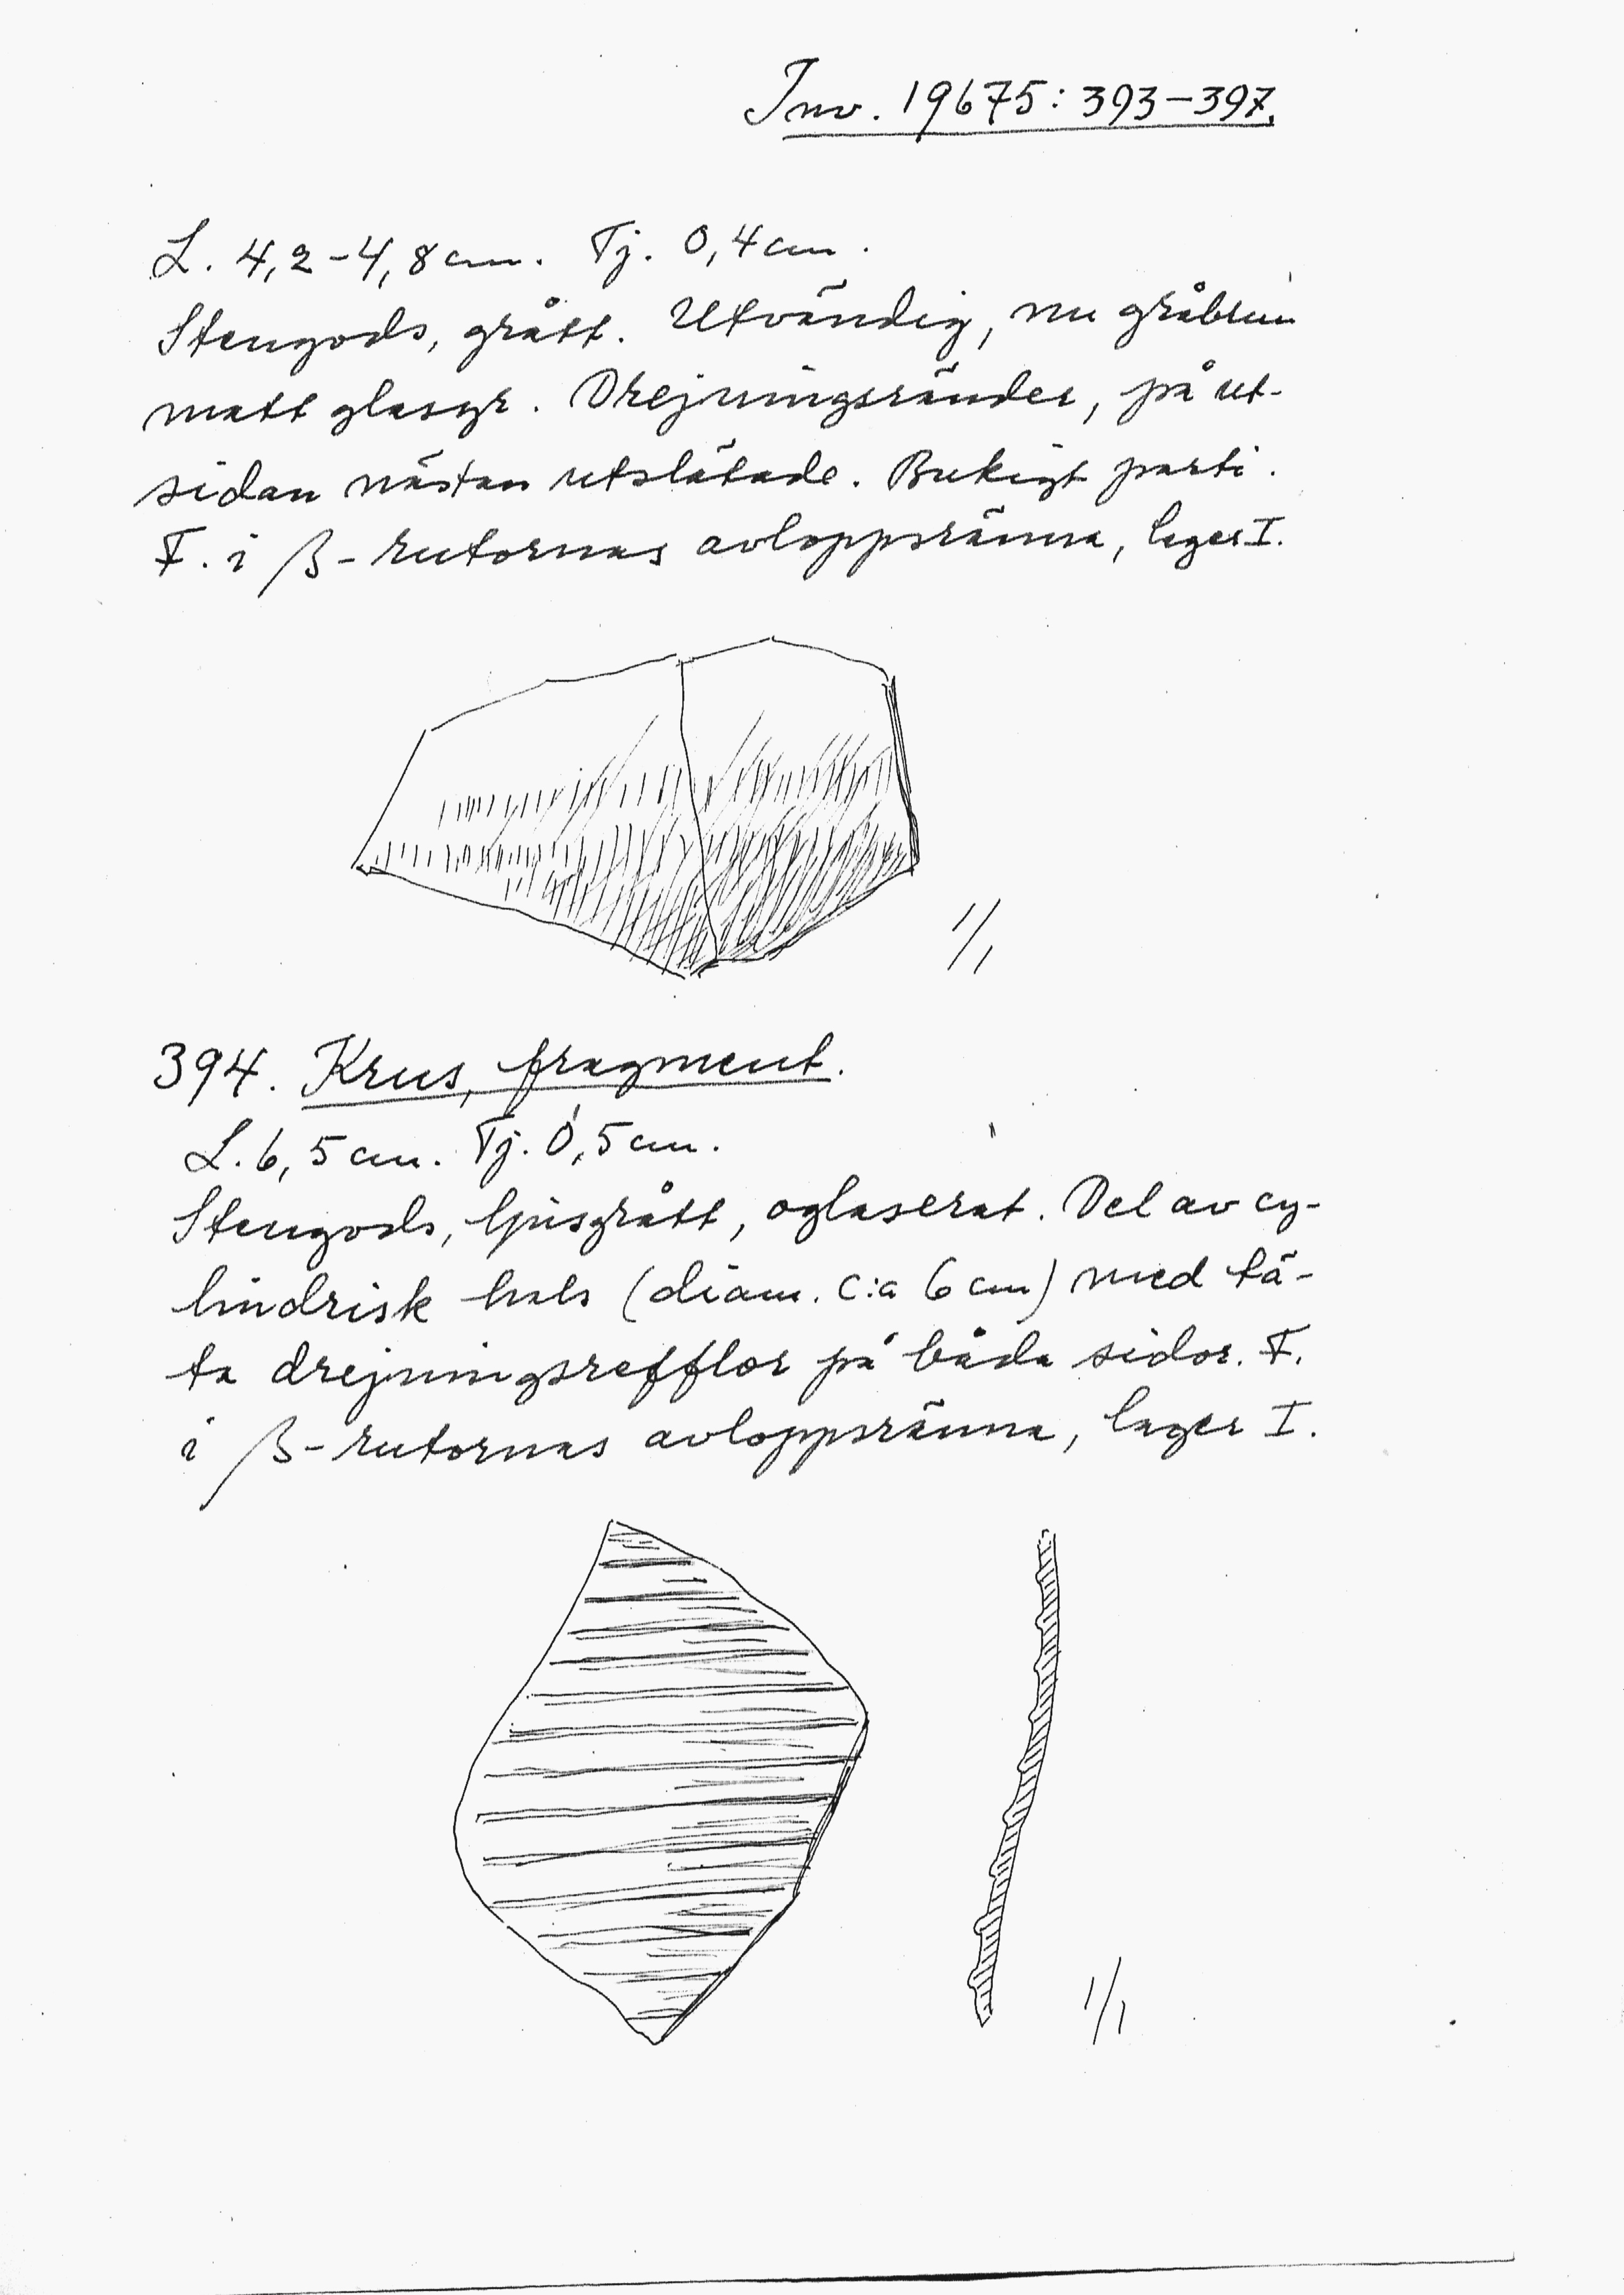 Inv. 19675: 393–397.
L. 4,2–4,8 cm. Tj. 0,4 cm.
Stengods, grått. Utvändig, nu gråbrun
matt glasyr. Drejningsränder, på ut-
sidan nästan utslätade. Bukigt parti.
F. i β-rutornas avloppsränna, lager I.
1/1
394. Krus, fragment.
L. 6,5 cm. Tj. 0,5 cm.
Stengods, ljusgrått, oglaserat. Del av cy-
lindrisk hals (diam. c:a 6 cm) med tä-
ta drejningsrefflor på båda sidor. F.
i β-rutornas avloppsränna, lager I.
1/1